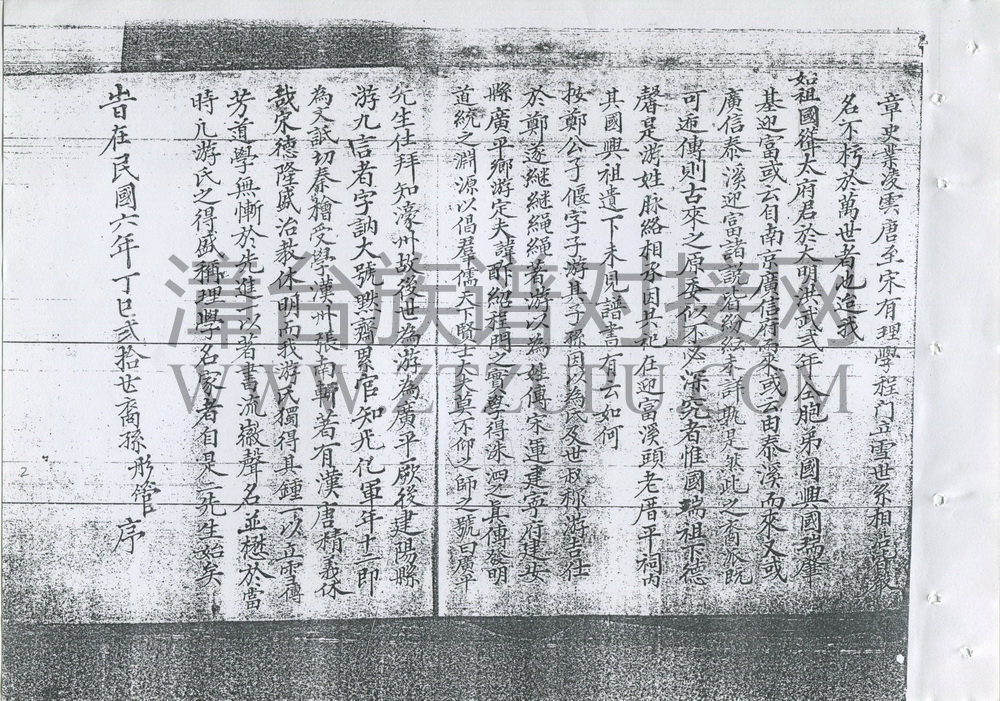 章史業淩雲唐至宋有理學程門立雪世系相
名不朽於萬世者也追我
如祖國禄太府君於大明洪武弍年合胞弟國興國瑞肇
基迎富或云自南京廣信府來或云由泰溪而來又或
廣信泰溪迎富諸說皆紛紛未詳孰是然此之裔派既
可迎傳則古來之原委似不必深究者惟國瑞祖宗德
馨是游姓脉絡相承因其祀在迎富溪頭老厝平祠内
其國興祖遺下未見譜書有云如何
按鄭公子偃字子游其子称因以為氏及世叔称游吉仕
於鄭遂継継繩繩著游以為姓傳宋運建寧府建安
縣廣平鄉游定夫諱酢紹程門之實學得洙泗之真傳發明
道統之淵源以倡羣儒天下賢士大夫莫不仰之師之號曰廣平
先生仕拜知濠州故後世為游為廣平厥後建陽縣
游九言者字訥大號默齋累官知光化軍年十二即
為文詆切秦檜受學漢州張南軒著有漢唐積義休
哉宋德隆盛治教休明而我游氏獨得其鍾一以立雪傳
芳道學無慚於先進一以著書流徽聲名並懋於當
時凢游氏之得盛稱理學名家者自是二先生始矣
旹在民國六年丁巳弍拾世裔孫彤管序
2
漳台族谱对接网
WWW.ZTZUPU.COM